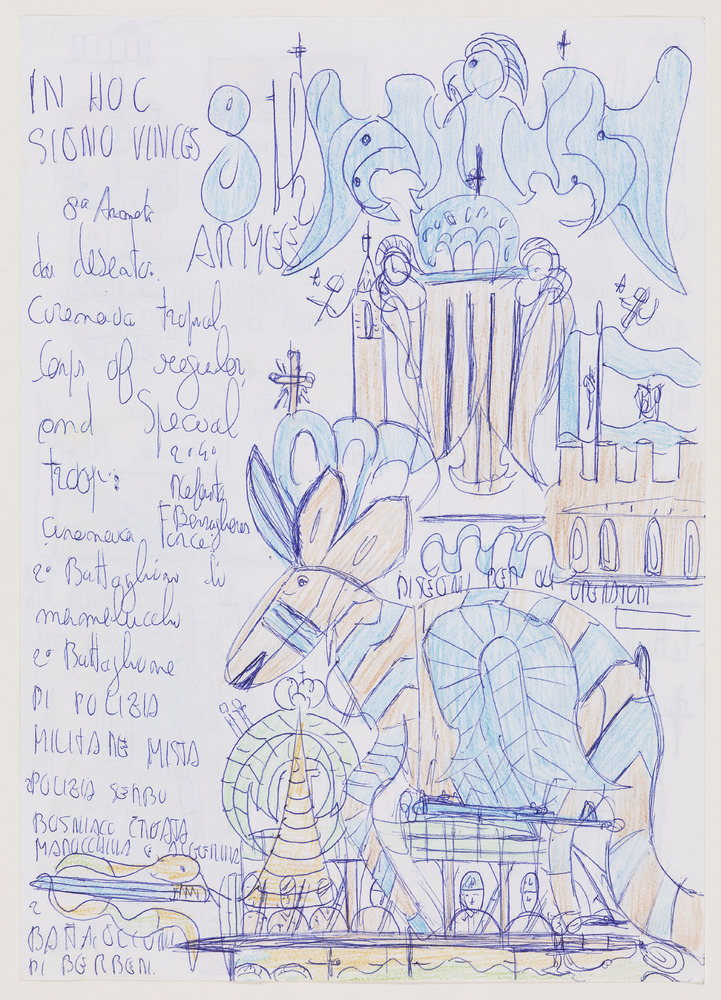 IN HOC
SIGNO VINCES
8th
ARMEE
8ª Armata
da deserto.
Cirenaica tropical
Corps of regular
and Special
troop:
2º 4º
Force
Cirenaica
2º Battaglione di
mammelucchi
2º Battaglione
DI POLIZIA
MILITARE MISTA
POLIZIA SERBO
BOSNIACO CROATA
MAROCCHINA E ALGERINA
2
BATTAGLIONI
DI BERBERI.
DISEGNI PER GLI OPERATORI